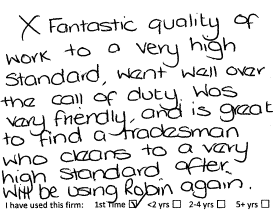 X Fantastic quality of
work to a very high
standard, went well over
the call of duty, was
very friendly, and is great
to find a tradesman
who cleans to a very
high standard after.
Will be using Robin again.
I have used this firm: 1st Time ☑ <2 yrs ☐ 2-4 yrs ☐ 5+ yrs ☐